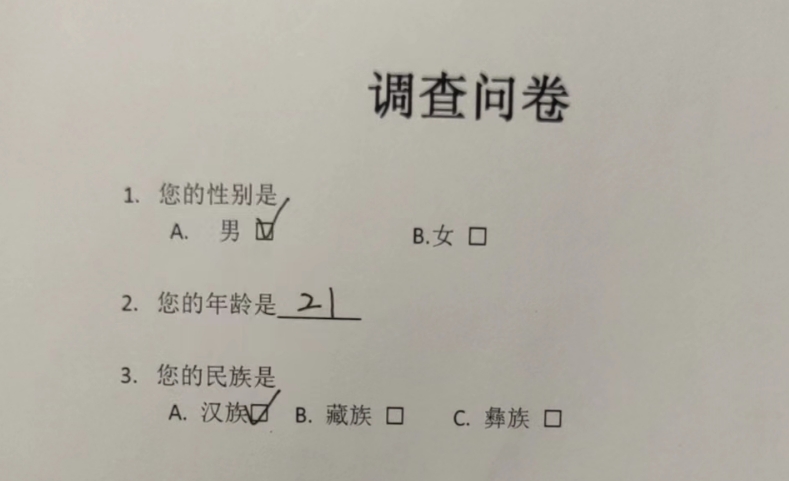 调查问卷
1. 您的性别是
A. 男 ☑ B.女 □
2. 您的年龄是 21
3. 您的民族是
A. 汉族☑ B. 藏族 □ C. 彝族 □